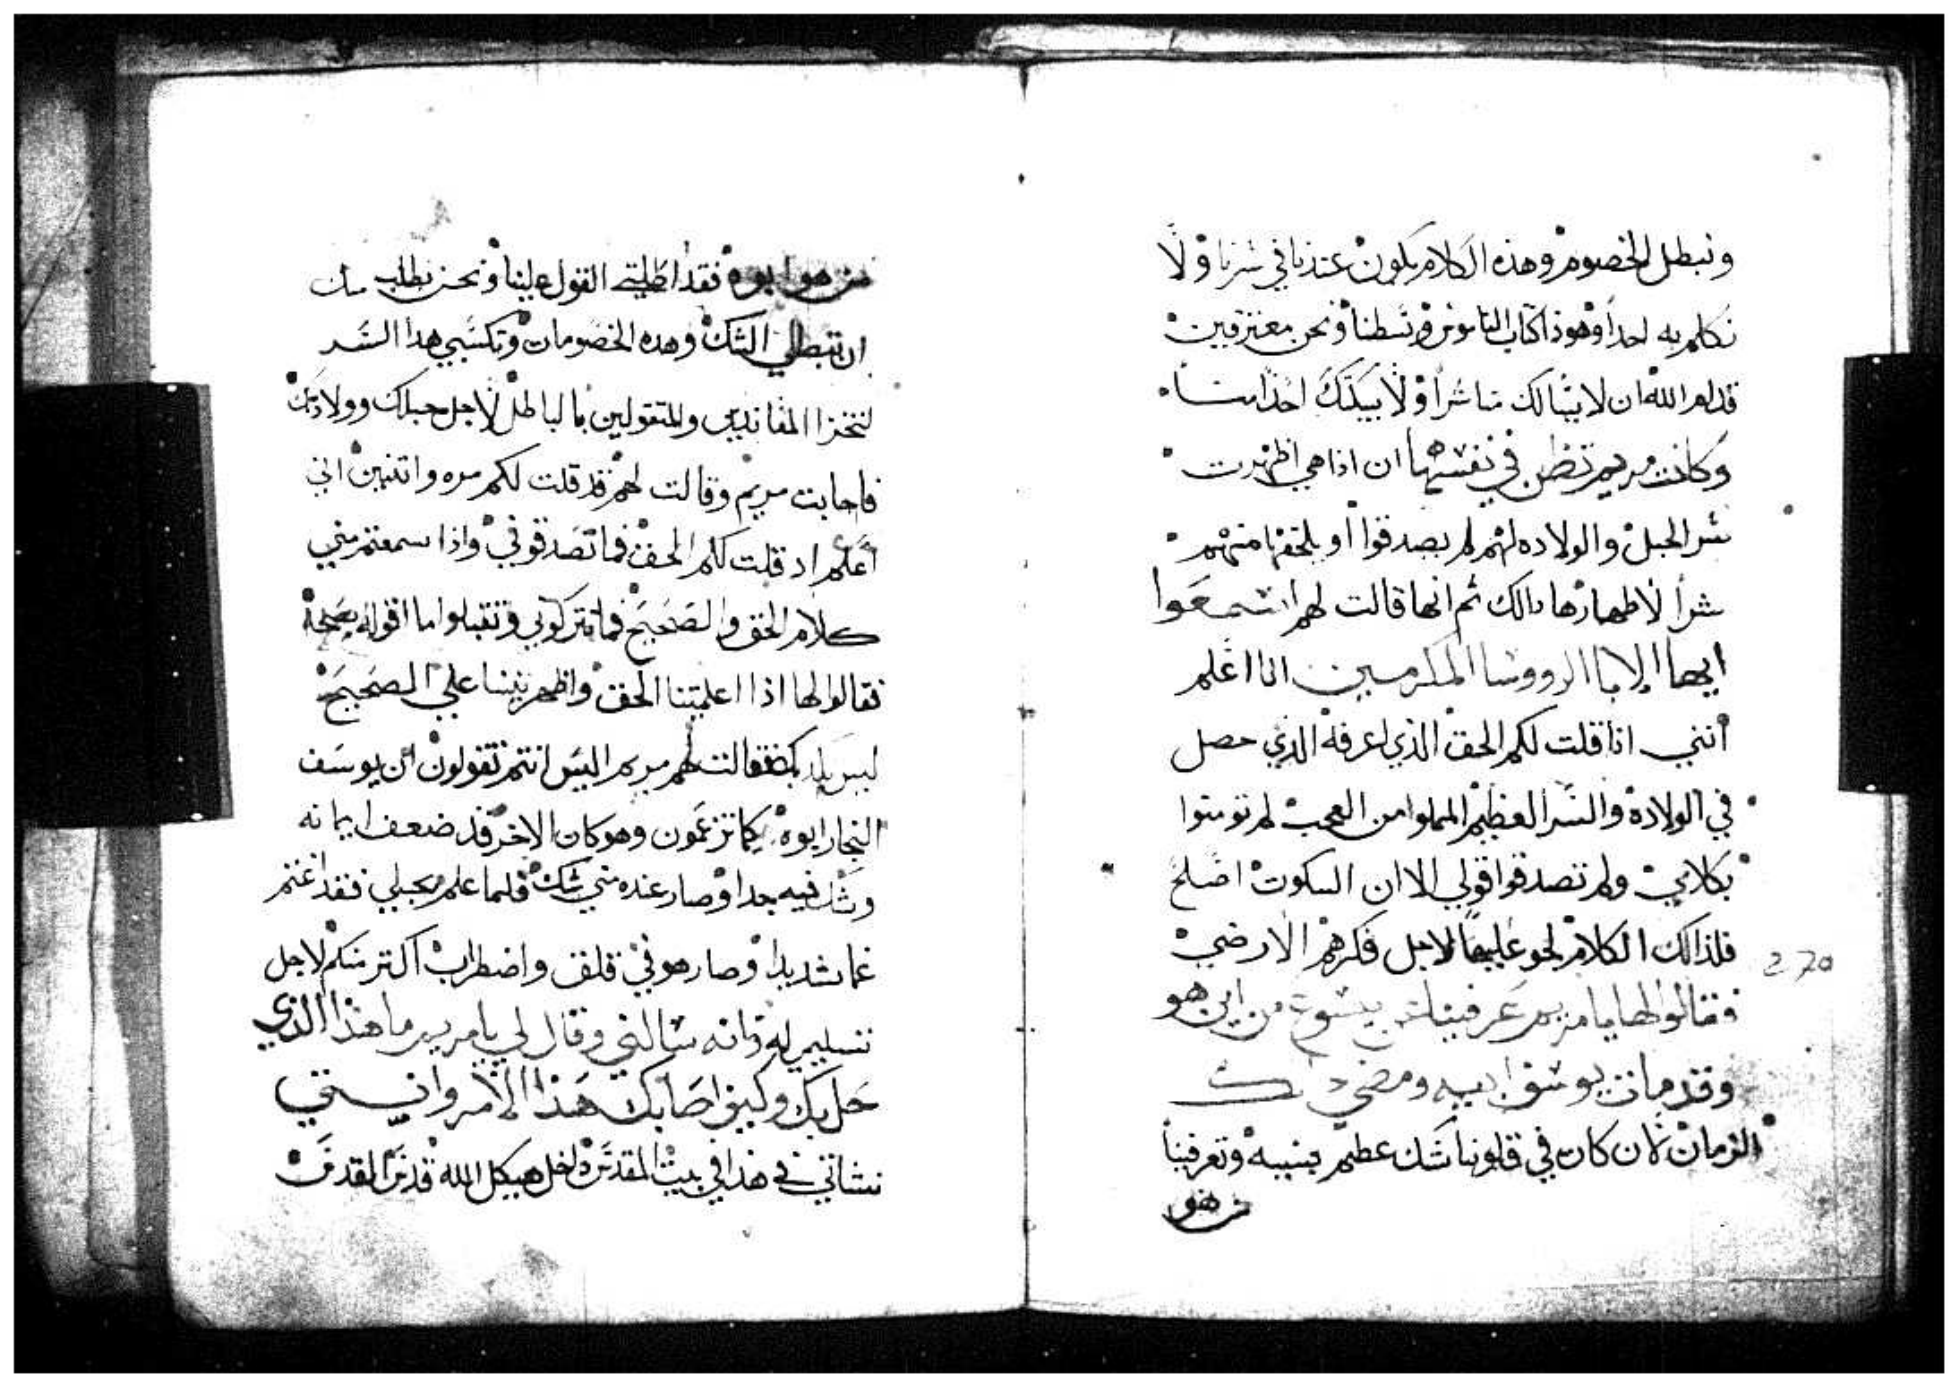 ونبطل الخصوم وهذه الكلام يكون عندنا في سرنا ولا
نكلم به احدا وهوذا كتاب الناموس وسطنا ونحن معترفين
قدام الله ان لا ينالك منا شرا ولا يبكتك احدا منا
وكانت مريم تظن في نفسها ان اذا هي اظهرت
سر الحبل والولاده لهم لم يصدقوا او يلحقها منهم
شرا لاظهارها دالك ثم انها قالت لهم اسمعوا
ايها الابا الرووسا المكرمين انا اعلم
أنني انا قلت لكم الحق الذي اعرفه الذي حصل
في الولادة والسر العظيم المملوا من العجب لم تومنوا
بكلامي ولم تصدقوا قولي الا ان السكوت اصلح
فلذالك الكلام لحو عليها لاجل فكرهم الارضي
فقالوا لها يا مريم عرفينا يسوع من اين هو
وقد مات يوسف ابيه ومضي
الزمان لان كان في قلوبنا شك عظيم بسببه وتعرفينا
من هو
270
من هو ابوه فقد اطلتي القول علينا ونحن نطلب منك
ان تبطلي الشك وهده الخصومات وتكشبي هدا السر
لنخزا المعاندين والمتقولين بالباطل لاجل حبلك وولادتك
فاجابت مريم وقالت لهم قد قلت لكم مره واتنين اني
أعلم اد قلت لكم الحق فما تصدقوني واذا سمعتم مني
كلام الحق والصحيح فما تتركوني وتقبلوا ما اقوله بصحة
فقالوا لها اذا اعلمتينا الحق واظهرتينا علي الصحيح
ليس فقالت لهم مريم اليس انتم تقولون ان يوسف
النجار ابوه كما تزعمون وهو كان الاخر قد ضعف ايمانه
وشك فيه جدا وصار عنده مني شك فلما علم بحبلي فقد اغتم
غما شديدا وصار هو في قلق واضطراب اكتر منكم لاجل
تسليمي له وانه سالني وقال لي يا مريم ما هذا الذي
حل بك وكيف اصابك هذا الامر وانتي
نشاتي في هذا في بيت المقدس داخل هيكل الله قدس القدس